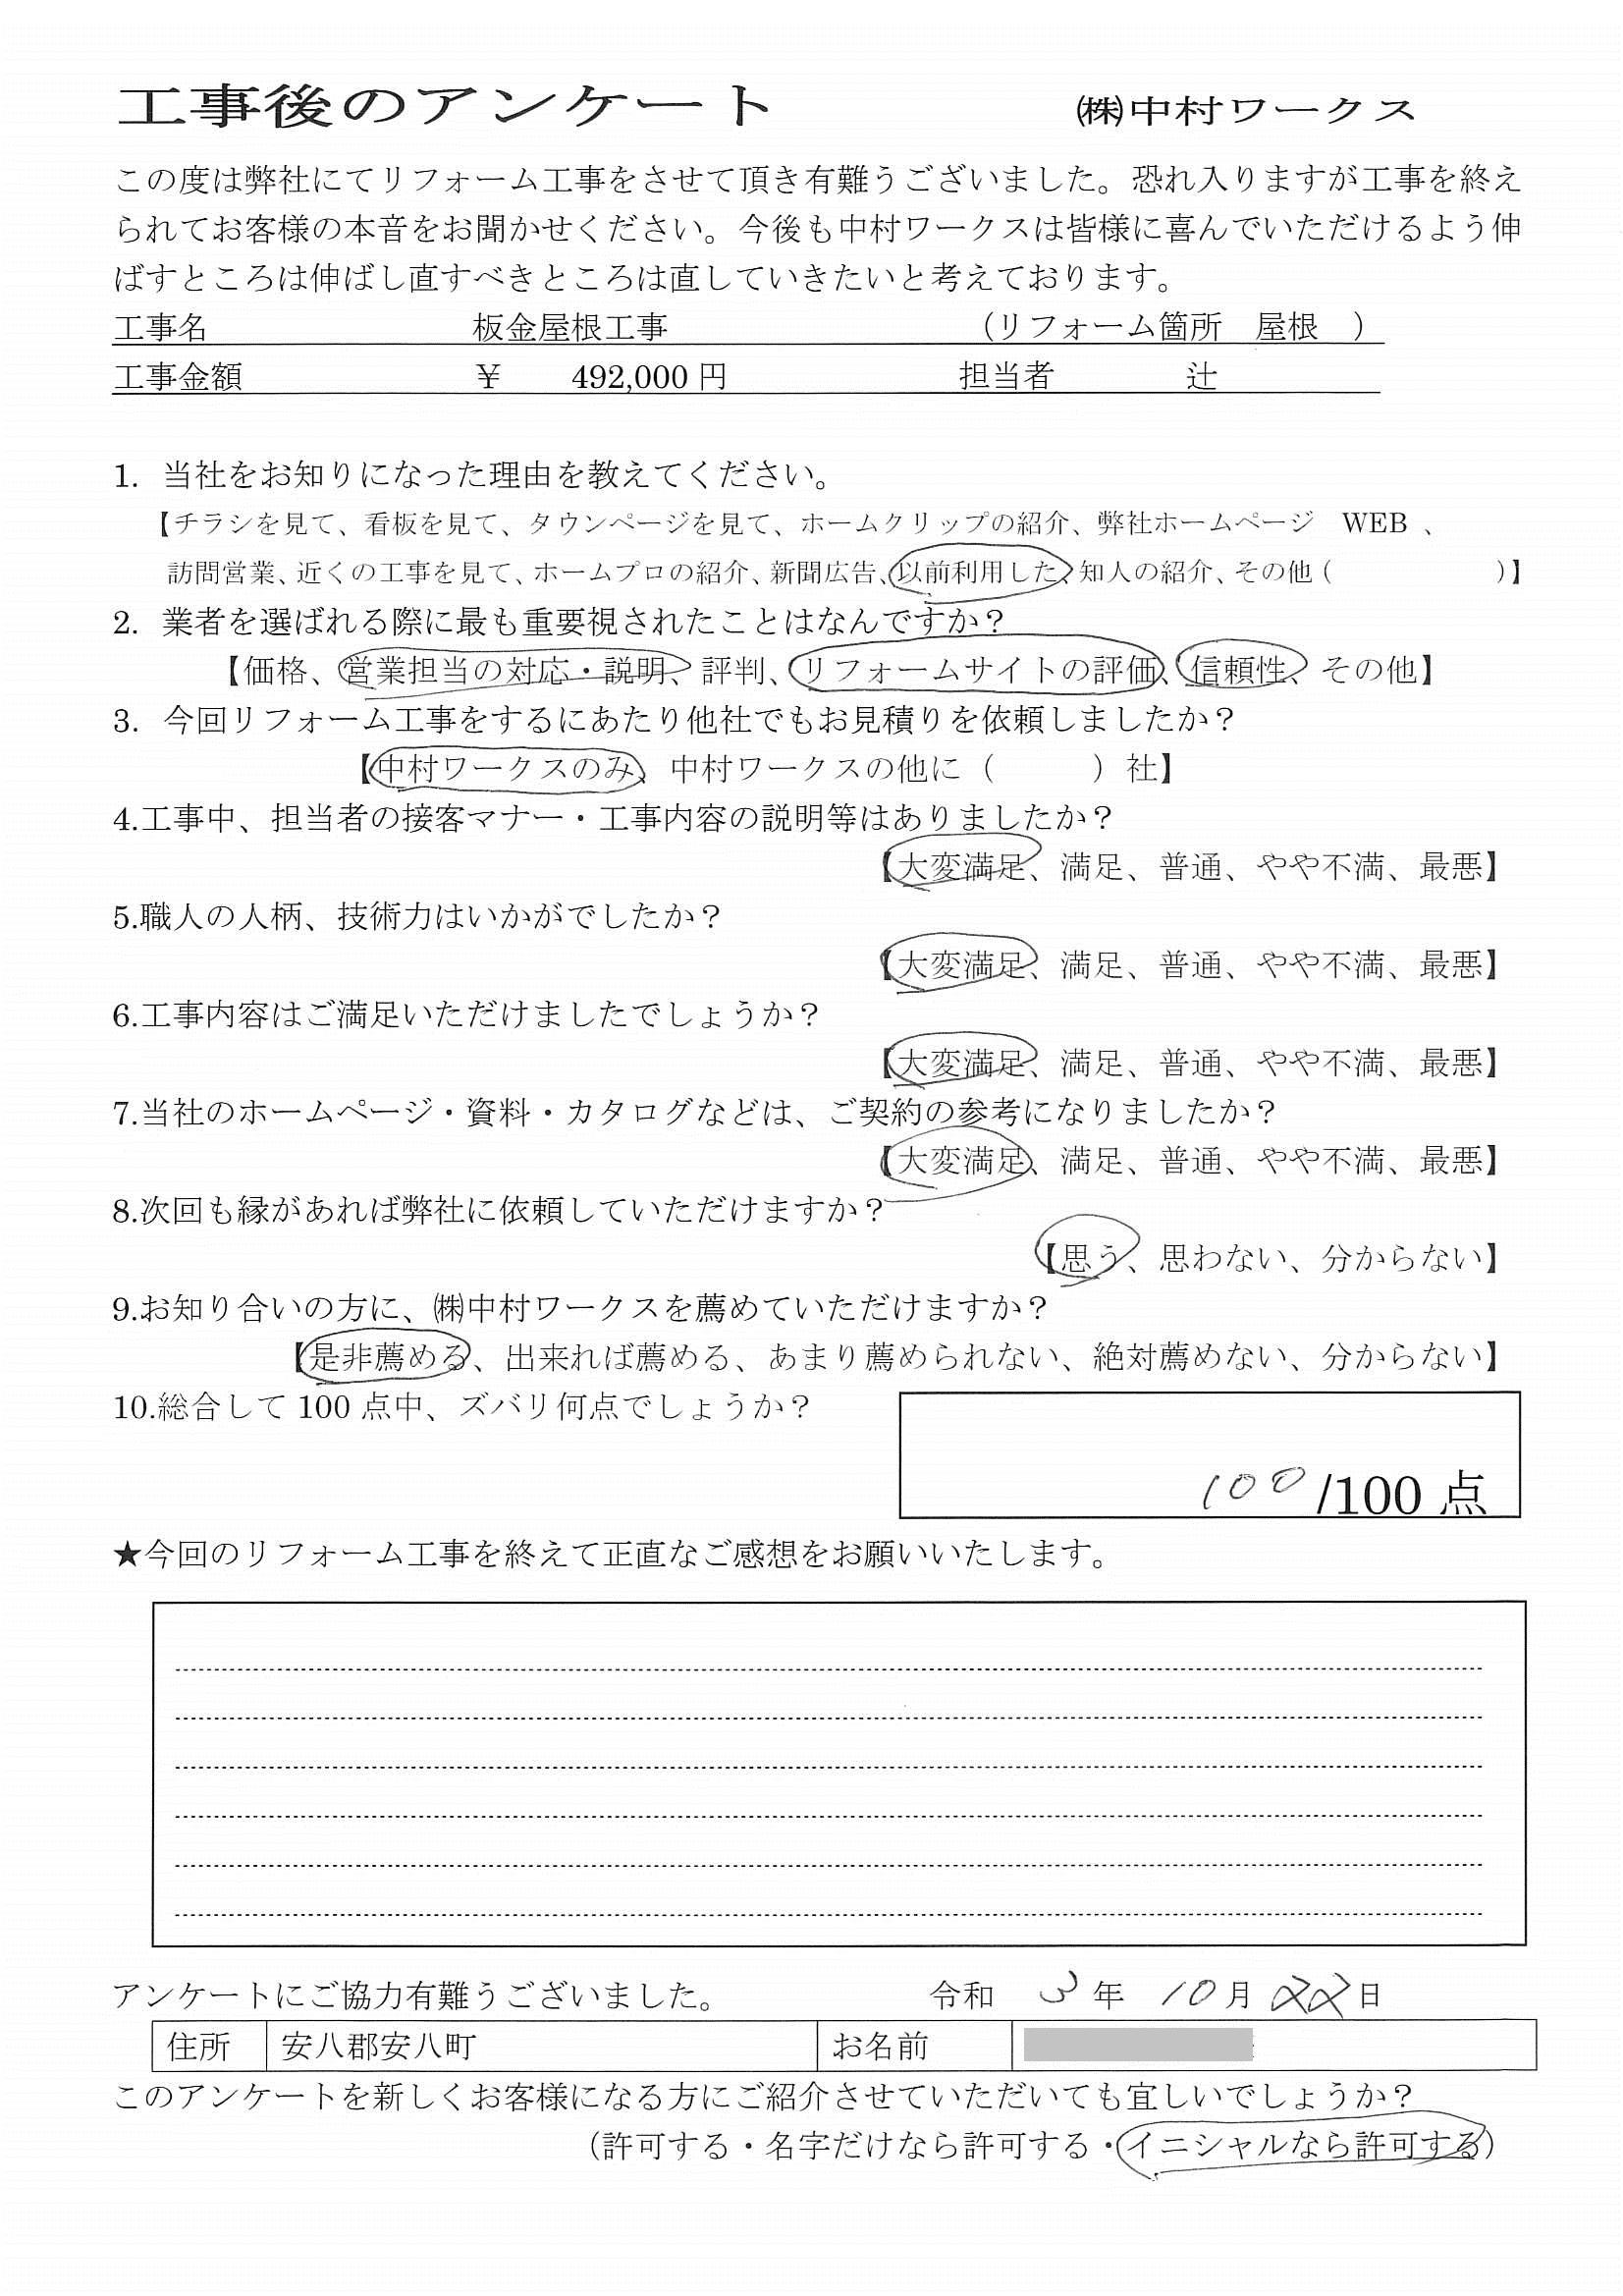 工事後のアンケート ㈱中村ワークス
この度は弊社にてリフォーム工事をさせて頂き有難うございました。恐れ入りますが工事を終え
られてお客様の本音をお聞かせください。今後も中村ワークスは皆様に喜んでいただけるよう伸
ばすところは伸ばし直すべきところは直していきたいと考えております。
工事名 板金屋根工事 (リフォーム箇所 屋根 )
工事金額 ¥ 492,000円 担当者 辻
1. 当社をお知りになった理由を教えてください。
【チラシを見て、看板を見て、タウンページを見て、ホームクリップの紹介、弊社ホームページ WEB 、
訪問営業、近くの工事を見て、ホームプロの紹介、新聞広告、以前利用した、知人の紹介、その他( )】
2. 業者を選ばれる際に最も重要視されたことはなんですか?
【価格、営業担当の対応・説明、評判、リフォームサイトの評価、信頼性、その他】
3. 今回リフォーム工事をするにあたり他社でもお見積りを依頼しましたか?
【中村ワークスのみ、中村ワークスの他に( )社】
4.工事中、担当者の接客マナー・工事内容の説明等はありましたか?
【大変満足、満足、普通、やや不満、最悪】
5.職人の人柄、技術力はいかがでしたか?
【大変満足、満足、普通、やや不満、最悪】
6.工事内容はご満足いただけましたでしょうか?
【大変満足、満足、普通、やや不満、最悪】
7.当社のホームページ・資料・カタログなどは、ご契約の参考になりましたか?
【大変満足、満足、普通、やや不満、最悪】
8.次回も縁があれば弊社に依頼していただけますか?
【思う、思わない、分からない】
9.お知り合いの方に、㈱中村ワークスを薦めていただけますか?
【是非薦める、出来れば薦める、あまり薦められない、絶対薦めない、分からない】
10.総合して100点中、ズバリ何点でしょうか?
100/100点
★今回のリフォーム工事を終えて正直なご感想をお願いいたします。
アンケートにご協力有難うございました。 令和 3年 10月22日
住所 安八郡安八町 お名前
このアンケートを新しくお客様になる方にご紹介させていただいても宜しいでしょうか?
(許可する・名字だけなら許可する・イニシャルなら許可する)